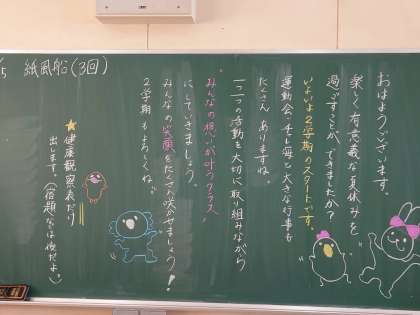 おはようございます。
楽しく有意義な夏休みを
過ごすことができましたか？
いよいよ2学期のスタートです。
運動会・チレ毎と大きな行事も
たくさんありますね。
一つ一つの活動を大切に取り組みながら
みんなの想いが叶うクラス
にしていきましょう。
みんなの笑顔をたくさん咲かせましょう！
2学期もよろしくね。
★健康観察表だけ
出します。（宿題などは後だよ。）
紙風船(3回)